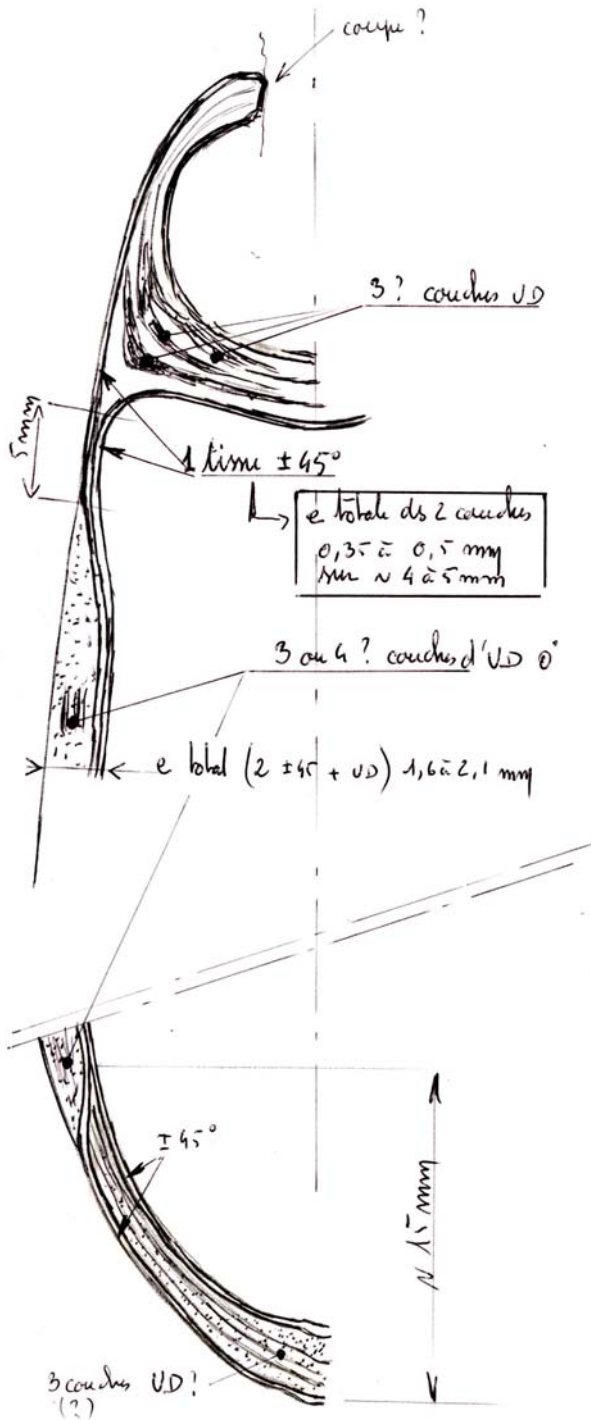 coupe ?
3 ? couches UD
5 mm
1 tissu ± 45°
e totale ds 2 couches
0,35 à 0,5 mm
sur ~ 4 à 5 mm
3 ou 4 ? couches d'UD 0°
e total (2 ±45 + UD) 1,6 à 2,1 mm
± 45°
~ 15 mm
3 couches UD ?
(?)